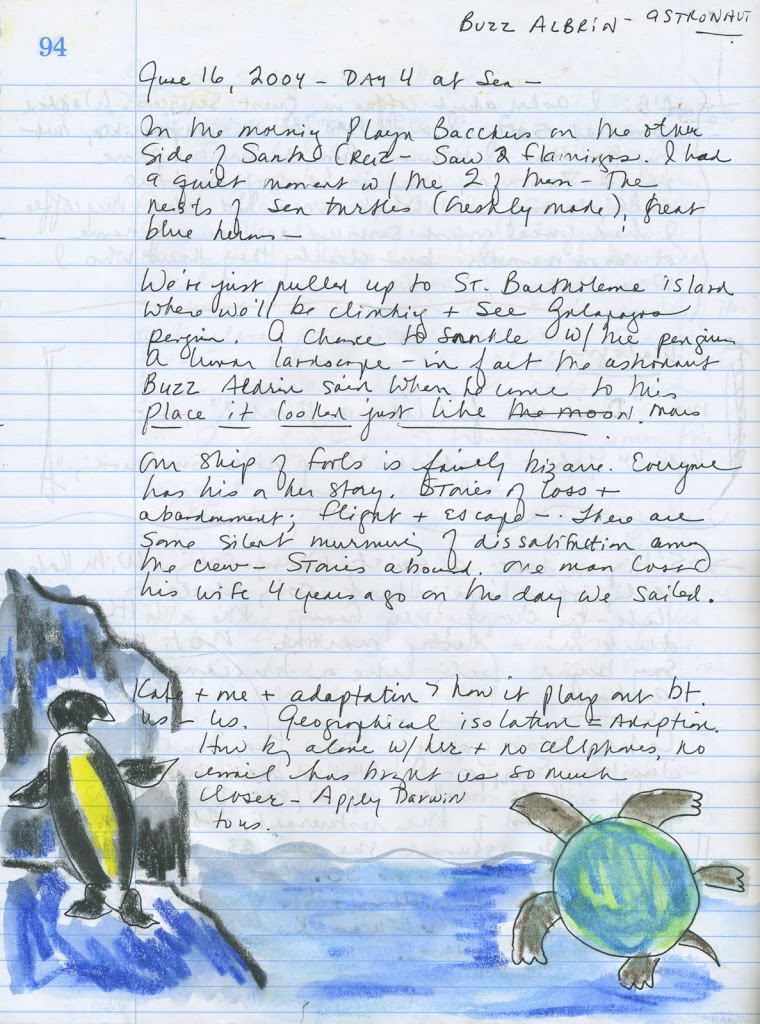 BUZZ ALBRIN - ASTRONAUT
94
June 16, 2004 - DAY 4 at Sea -
In the morning Playa Bacchus on the other
Side of Santa Cruz - Saw 2 flamingos. I had
a quiet moment w/ the 2 of them - The
nests of sea turtles (freshly made), great
blue herons -
We're just pulled up to St. Bartholeme island
where we'll be climbing + see Galapagos
penguin. A chance to snorkle w/ the penguins
A lunar landscape - in fact the astronaut
Buzz Aldrin said when he came to this
place it looked just like the moon mars
Our ship of fools is fairly bizarre. Everyone
has his or her story. Stories of loss +
abandonment; flight + escape -. There are
some silent murmurings of dissatisfaction among
the crew - Stories abound. One man lost
his wife 4 years ago on the day we sailed.
Kate + me + adaptation > how it plays out bt.
us - us. Geographical isolation = Adaption.
How being alone w/ her + no cellphones, no
email has brought us so much
closer - Apply Darwin
to us.